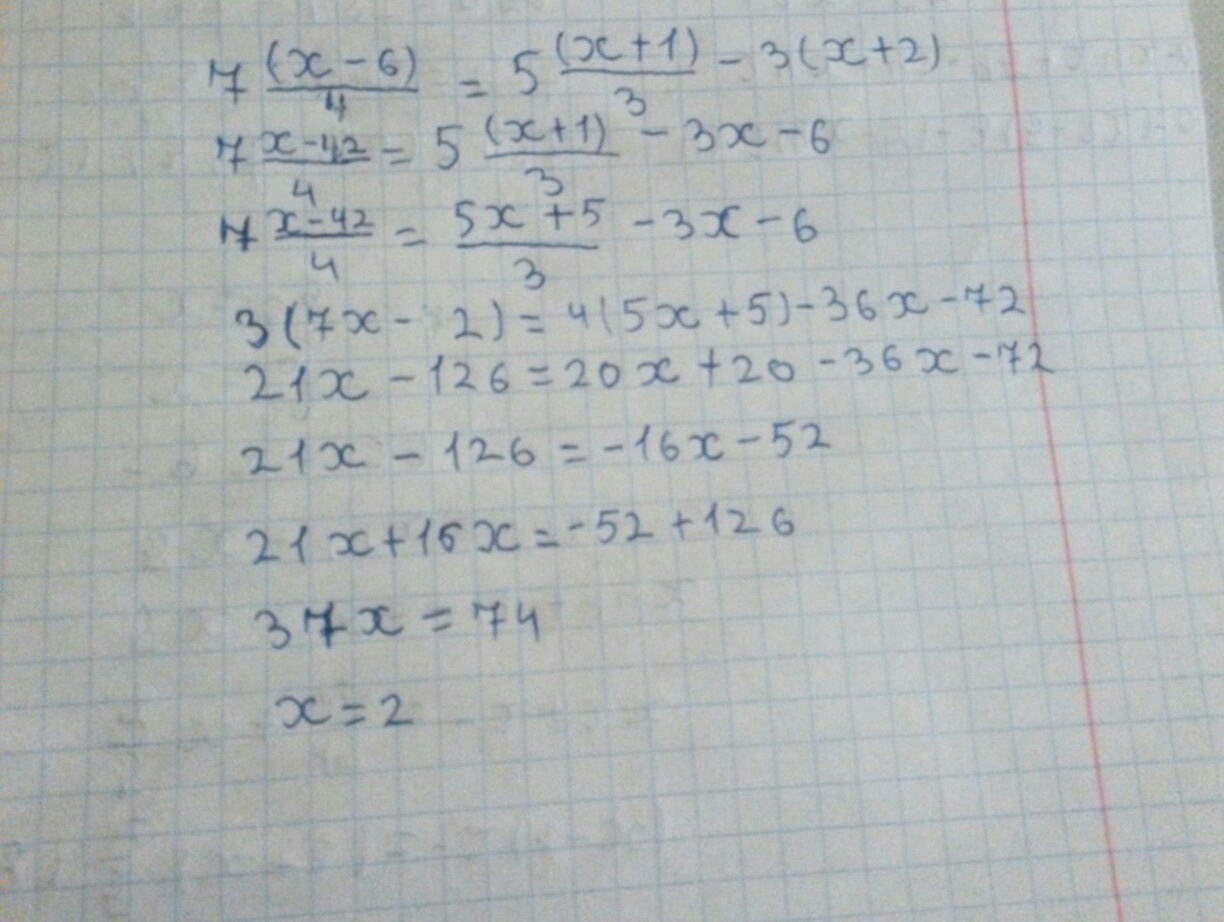 7 (x-6)/4 = 5 (x+1)/3 - 3(x+2)
7 x-42/4 = 5 (x+1)/3 - 3x-6
7 x-42/4 = 5x+5/3 - 3x-6
3(7x- 2)=4(5x+5)-36x-72
21x-126=20x+20-36x-72
21x-126=-16x-52
21x+16x=-52+126
37x=74
x=2